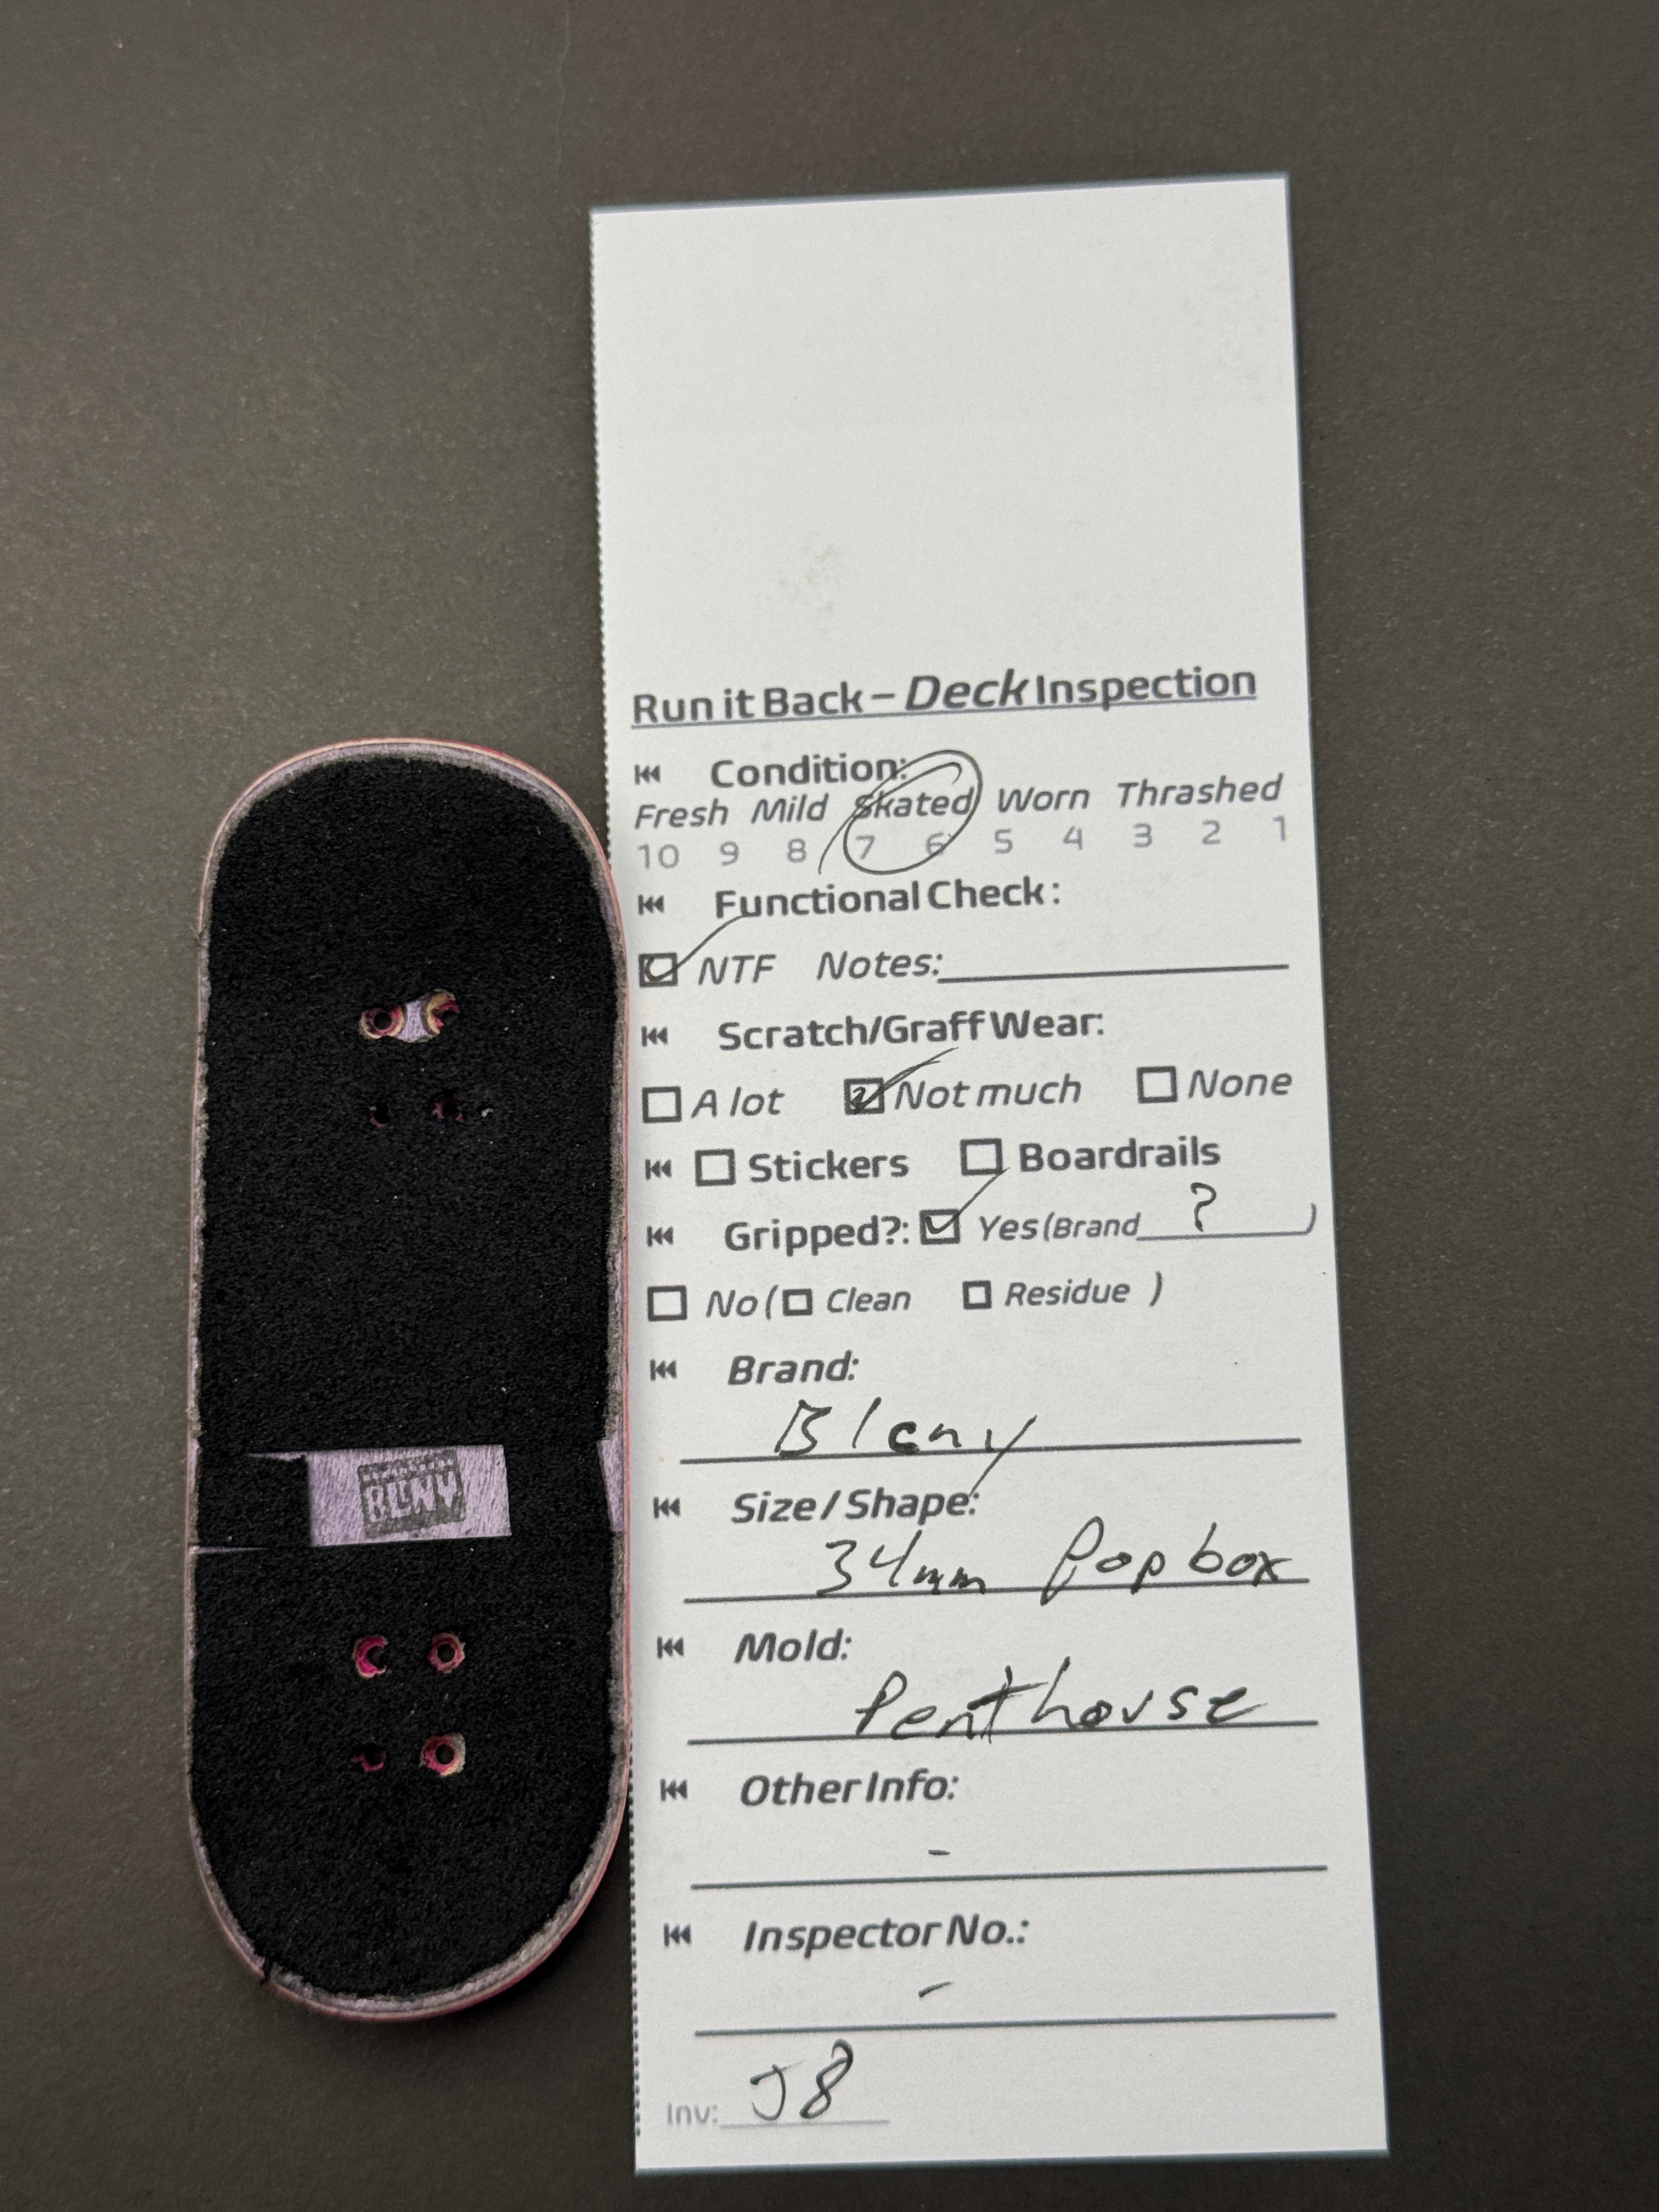 Run it Back – Deck Inspection
Condition:
Fresh Mild Skated Worn Thrashed
10 9 8 7 6 5 4 3 2 1
Functional Check:
NTF Notes:
Scratch/Graff Wear:
A lot Not much None
Stickers Boardrails
Gripped?: Yes (Brand ? )
No ( Clean Residue )
Brand:
Blcny
Size / Shape:
34mm Popbox
Mold:
Penthouse
Other Info:
-
Inspector No.:
-
Inv: J8
BLCNY